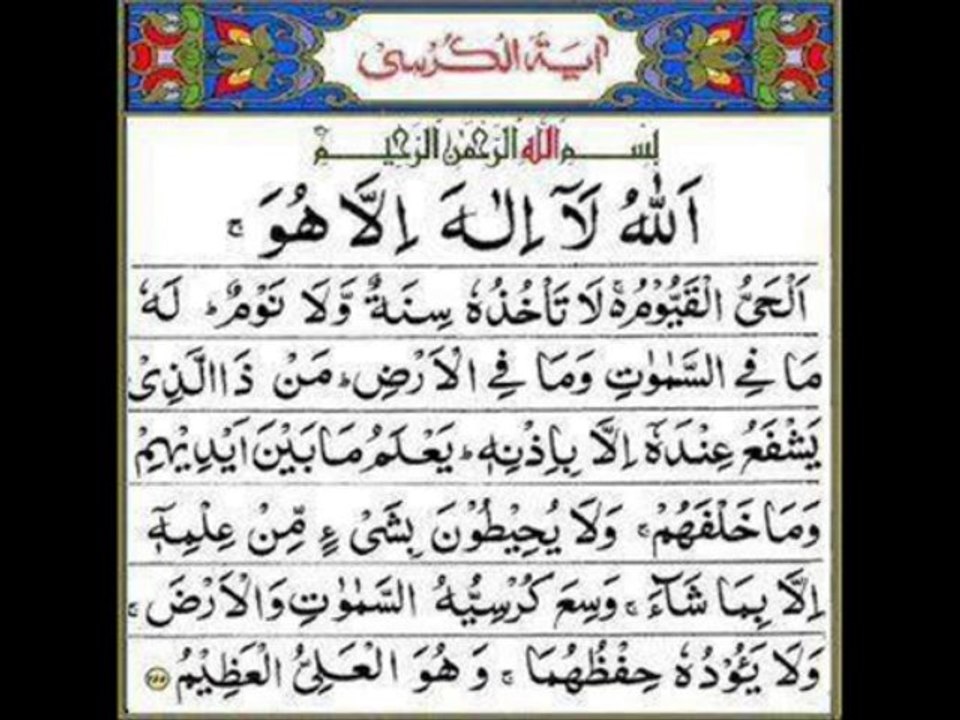 اٰيَةُ الْكُرْسِى
بِسْمِ اللّٰهِ الرَّحْمٰنِ الرَّحِيْمِ
اَللّٰهُ لَآ اِلٰهَ اِلَّا هُوَ ۚ
اَلْحَىُّ الْقَيُّوْمُ ۚ لَا تَاْخُذُهٗ سِنَةٌ وَّلَا نَوْمٌ ؕ لَهٗ
مَا فِى السَّمٰوٰتِ وَمَا فِى الْاَرْضِ ؕ مَنْ ذَا الَّذِىْ
يَشْفَعُ عِنْدَهٗٓ اِلَّا بِاِذْنِهٖ ؕ يَعْلَمُ مَا بَيْنَ اَيْدِيْهِمْ
وَمَا خَلْفَهُمْ ۚ وَلَا يُحِيْطُوْنَ بِشَىْءٍ مِّنْ عِلْمِهٖٓ
اِلَّا بِمَا شَآءَ ۚ وَسِعَ كُرْسِيُّهُ السَّمٰوٰتِ وَالْاَرْضَ ۚ
وَلَا يَـُٔوْدُهٗ حِفْظُهُمَا ۚ وَهُوَ الْعَلِىُّ الْعَظِيْمُ ۝۲۵۵